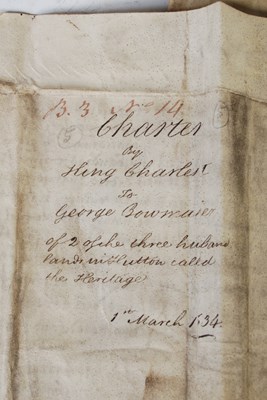 B. 3 No 14
(5) (5)
Charter
By
King Charles
To
George Bowmaker
of 2 of the three husband
lands in Hutton called
the Heritage
1st March 1634.